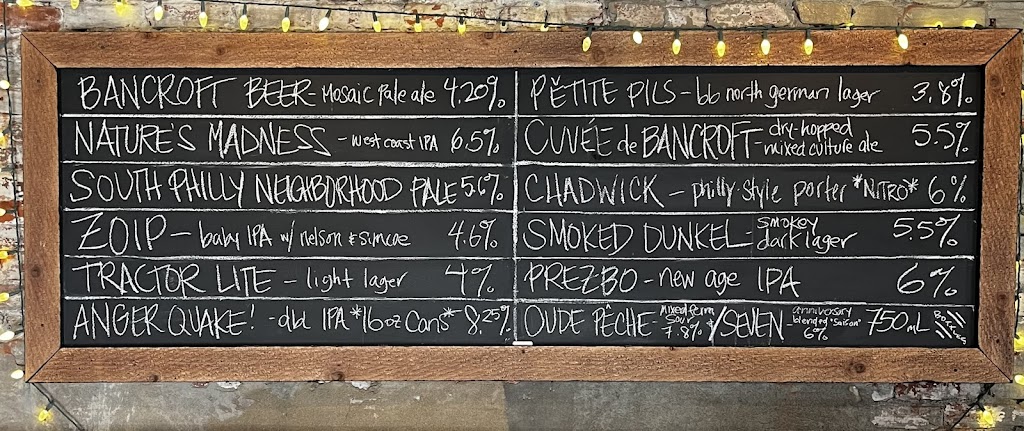 BANCROFT BEER - Mosaic Pale ale 4.20%
NATURE'S MADNESS - west coast IPA 6.5%
SOUTH PHILLY NEIGHBORHOOD PALE 5.6%
ZOIP - baby IPA w/ nelson & simcoe 4.6%
TRACTOR LITE - light lager 4%
ANGER QUAKE! - dbl IPA *16oz Cans* 8.25%
PĔTITE PILS - bb north german lager 3.8%
CUVÉE de BANCROFT - dry-hopped mixed culture ale 5.5%
CHADWICK - philly style porter *NITRO* 6%
SMOKED DUNKEL - smokey dark lager 5.5%
PREZBO - new age IPA 6%
OUDE PÊCHE - mixed ferm sour 7.8% / SEVEN - anniversary blended "saison" 6% 750mL BOTTLES